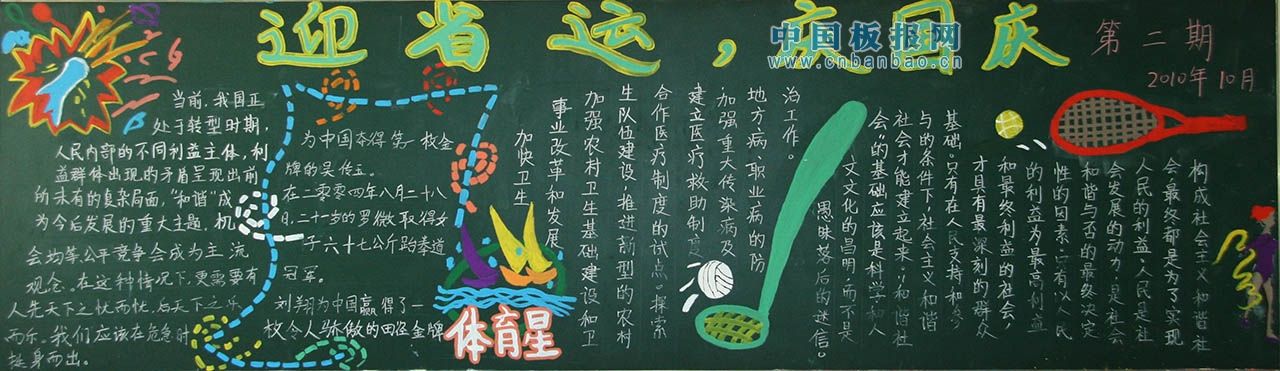 迎省运，庆国庆
中国板报网
www.cnbanbao.cn
第二期
2010年10月
当前,我国正
处于转型时期,
人民内部的不同利益主体,利
益群体出现的矛盾呈现出前
所未有的复杂局面,"和谐"成
为今后发展的重大主题,机
会均等公平竞争会成为主流
观念。在这种情况下,更需要有
人先天下之忧而忧,后天下之乐
而乐。我们应该在危急时
挺身而出。
为中国夺得第一枚金
牌的吴传玉。
在二零零四年八月二十八
日,二十一岁的罗微取得女
子六十七公斤跆拳道
冠军。
刘翔为中国赢得了一
枚令人骄傲的田径金牌
体育星
加快卫生
事业改革和发展
加强农村卫生基础建设和卫
生队伍建设,推进新型的农村
合作医疗制度的试点。探索
建立医疗救助制度
加强重大传染病及
地方病、职业病的防
治工作。
构成社会主义和谐社
会最终都是为了实现
人民的利益,人民是社
会发展的动力,是社会
和谐与否的最终决定
性的因素,只有以人民
的利益为最高利益
和最终利益的社会,
才具有最深刻的群众
基础。只有在人民支持和参
与的条件下,社会主义和谐
社会才能建立起来,和谐社
会"的基础应该是科学和人
文文化的昌明,而不是
愚昧落后的迷信。